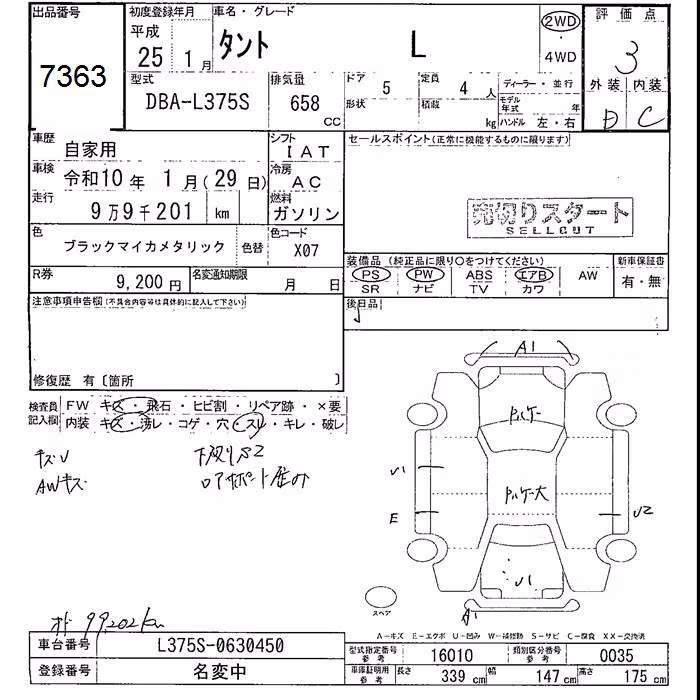 出品番号 7363
初度登録年月 平成 25 1月
車名・グレード タント L
2WD ・ 4WD
評価点 3
外装 D 内装 C
型式 DBA-L375S
排気量 658 CC
ドア 5 形状
定員 4 人 積載 kg
ディーラー・並行
モデル年式 年
ハンドル 左・右
車歴 自家用
シフト IAT
車検 令和10年 1月(29日)
冷房 AC
走行 9万9千201 km
燃料 ガソリン
色 ブラックマイカメタリック 色替
色コード X07
R券 9,200円
名変通知期限 月 日
セールスポイント(正常に機能するものに限ります)
売切りスタート
SELLOUT
装備品 (純正品に限り○をつけてください)
PS PW ABS エアB AW
SR ナビ TV カワ
新車保証書 有・無
後日品
注意事項申告欄(不具合内容等は具体的に記入して下さい)
修復歴 有〔箇所 〕
検査員記入欄
FW キズ・飛石・ヒビ割・リペア跡・×要
内装 キズ・汚レ・コゲ・穴・スレ・キレ・破レ
キズU 下廻りS2
AWキズ ロアサポート歴のみ
A1
U1
E
U2
U1
A1
スペア
A−キズ E−エクボ U−凹み W−補修跡 S−サビ C−腐食 XX−交換済
オド 99,202km
車台番号 L375S-0630450
登録番号 名変中
型式指定番号 参考 16010
類別区分番号 参考 0035
車庫証明用 参考 長さ 339cm 幅 147cm 高さ 175cm